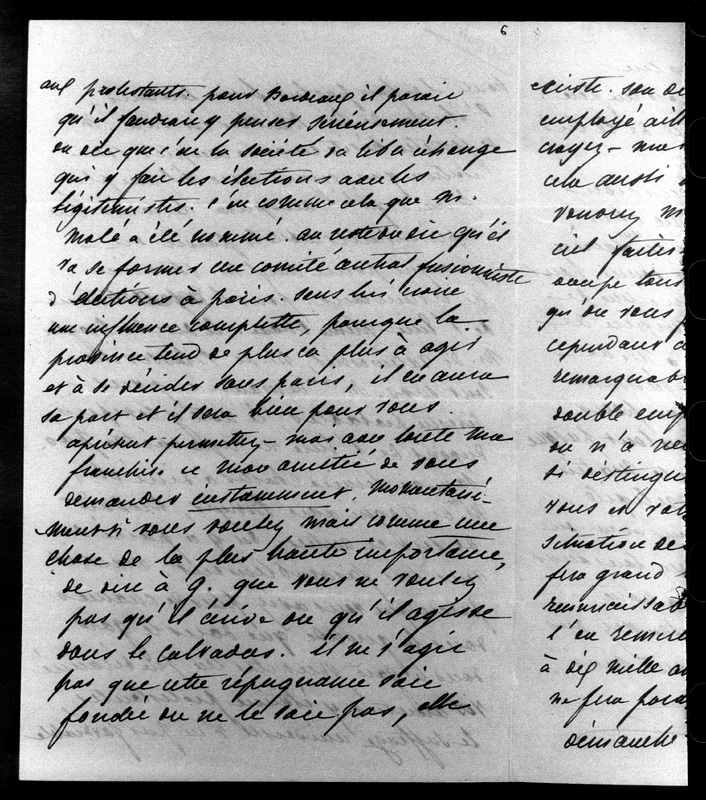 6
aux protestants. pour Bordeaux il parait
qu'il faudrait y penser sérieusement.
on dit que c'est la société du libre échange
qui y fait les élections avec les
légitimistes. c'est comme cela que M.
Molé a été nommé. au reste on dit qu'il
va se former un comité central fusionniste
d'élections à paris. sans lui croire
une influence complette, parceque la
province tend de plus en plus à agir
et à se décider sans paris, il en aura
sa part et il sera bien pour vous.
àprésent permettez-moi avec toute ma
franchise et mon amitié de vous
demander instamment, momentané-
ment si vous voulez mais comme une
chose de la plus haute importance,
de dire à G. que vous ne voulez
pas qu'il écrive ou qu'il agisse
dans le calvados. il ne s'agit
pas que cette répugnance soit
fondée ou ne le soit pas, elle
existe. son de
employé aill
croyez-moi
cela aussi
vous
ciel faites
occupe tous
qu'on vous
cependant
remarquab
double emp
on n'a
si distingu
vous et vot
situation de
fera grand
reconnaissab
l'en remerc
à dix mille
ne fera
démarche